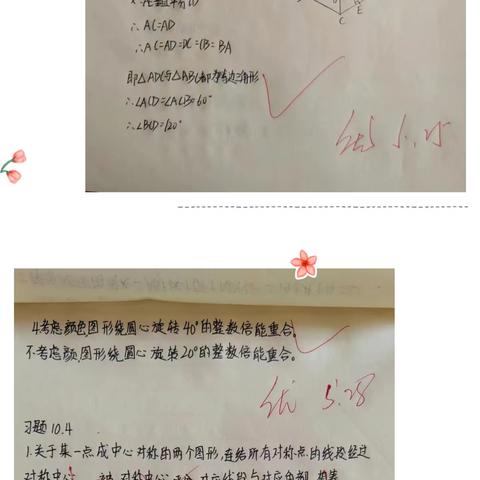 ∴ AC=AD
∴AC=AD=DC=CB=BA
即△ADC与△ABC都为等边三角形
∴∠ACD=∠ACB=60°
∴∠BCD=120°
C
E
优 5.25
4.考虑颜色,图形绕圆心旋转40°的整数倍能重合,
不考虑颜,图形绕圆心旋转20°的整数倍能重合。
优 5.28
习题10.4
1.关于某一点成中心对称的两个图形,连结所有对称点的线段经过
对称中心 对称中心平分 对应线段与对应角都相等